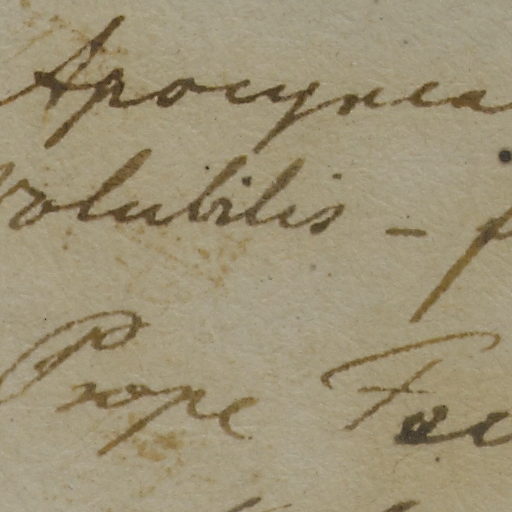 Apocynea
Volubilis –
Prope